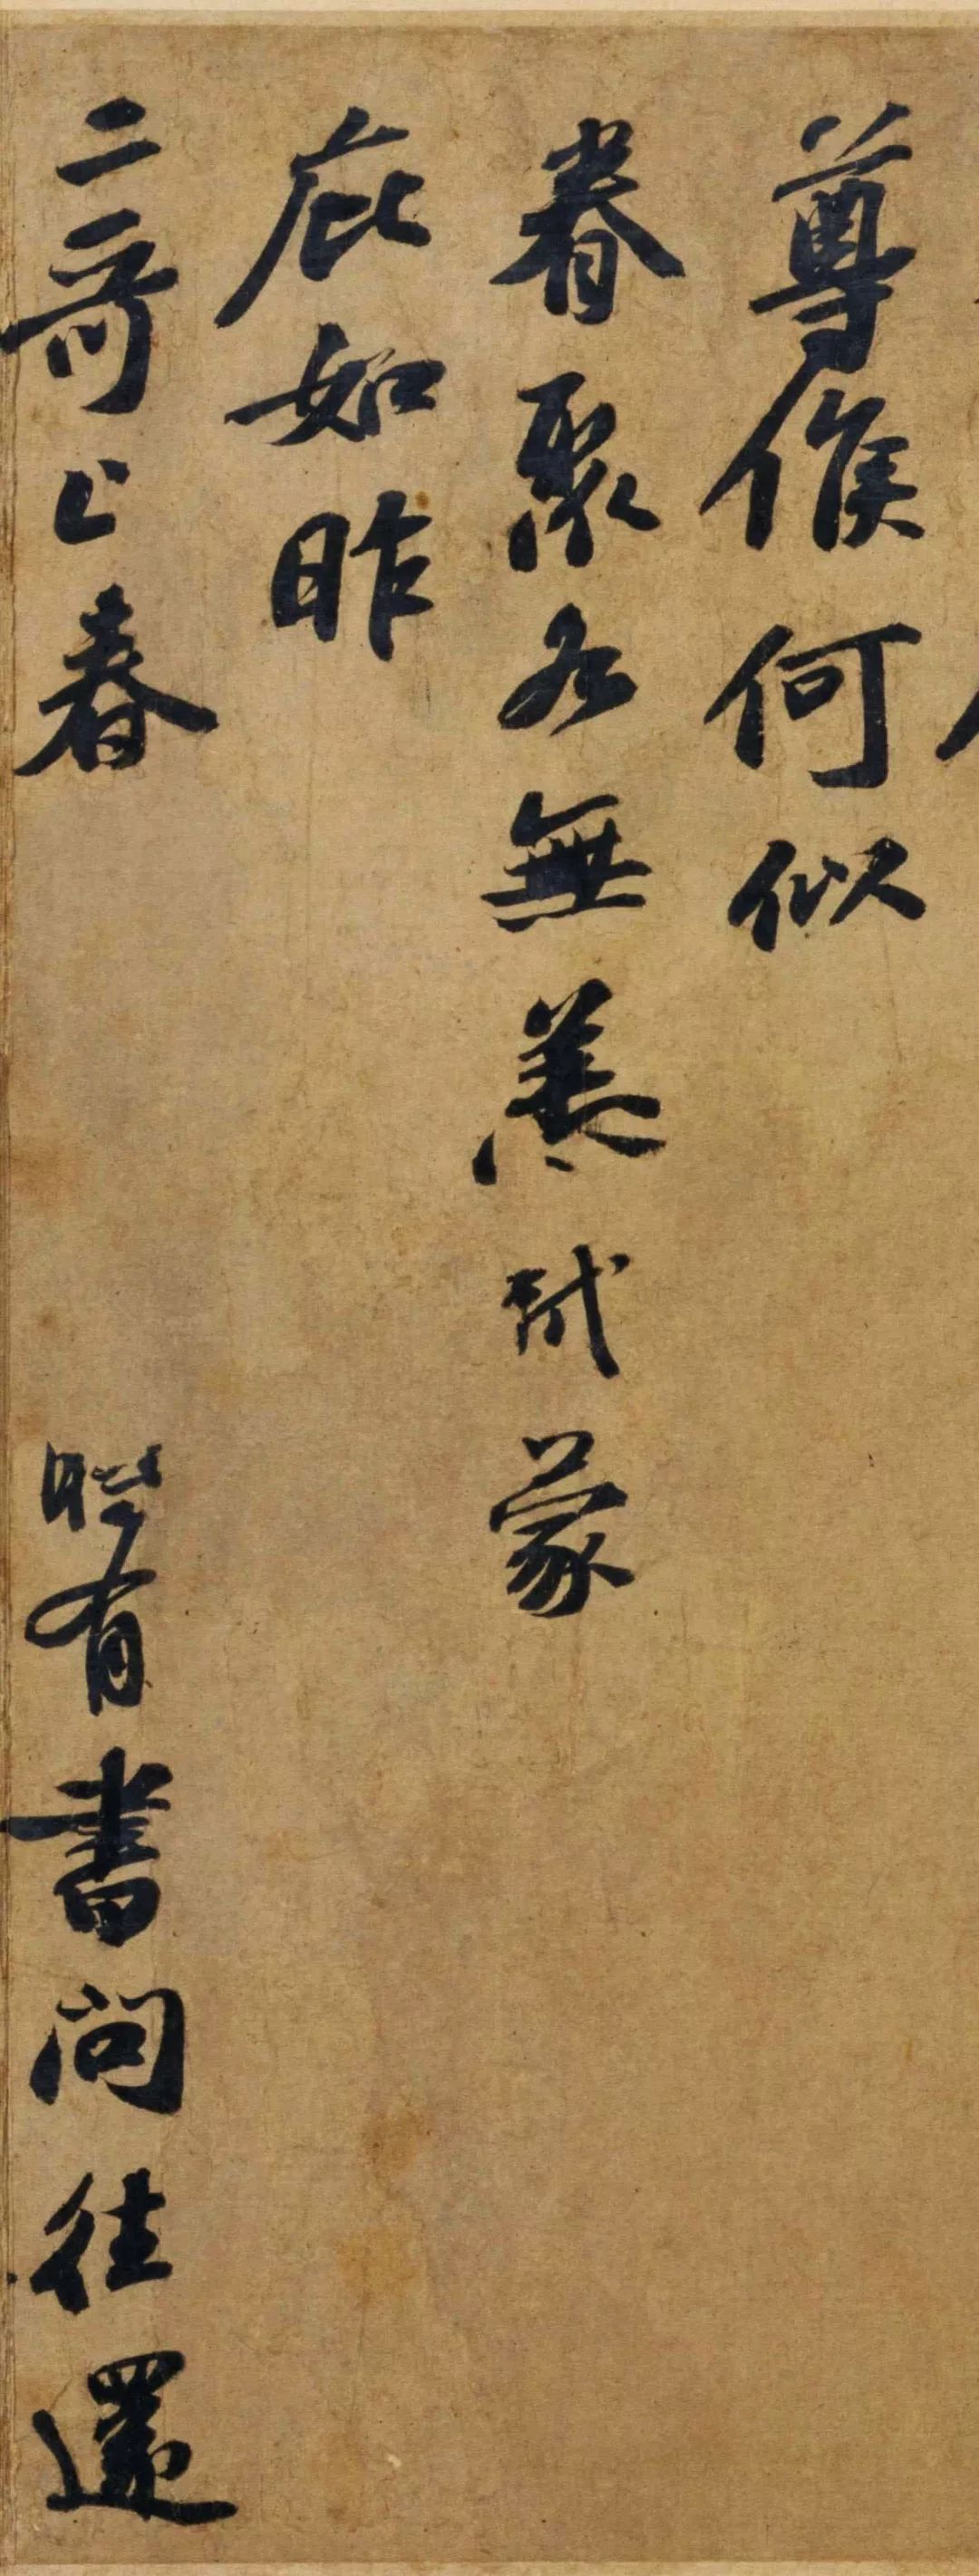 尊候何似
眷聚各無恙軾蒙
庇如昨
二哥上春時有書問往還